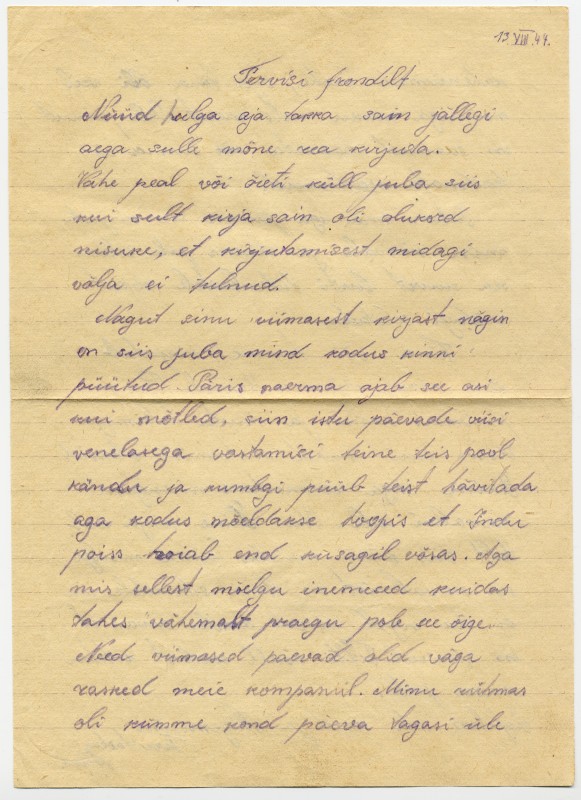 13 VIII 44.
Tervisi frondilt
Nüüd palga aja takka sain jällegi
aega sulle mõne rea kirjuta.
Vahe peal või õieti küll juba siis
kui sult kirja sain oli olukord
nisuke, et kirjutamisest midagi
välja ei tulnud.
Nagut sinu viimasest kirjast nägin
on siis juba mind kodus kinni
püütud. Päris naerma ajab see asi
kui mõtled, siin istu päevade viisi
venelasega vastamisi teine teis pool
kändu ja kumbgi püüb teist hävitada
aga kodus mõeldakse hoopis et Indu
poiss hoiab end kusagil võsas. Aga
mis sellest mõelgu inemeced kuidas
tahes vähemalt praegu pole see õige.
Need viimased päevad olid väga
rasked meie kompaniil. Minu rühmas
oli kümme kond päeva tagasi üle